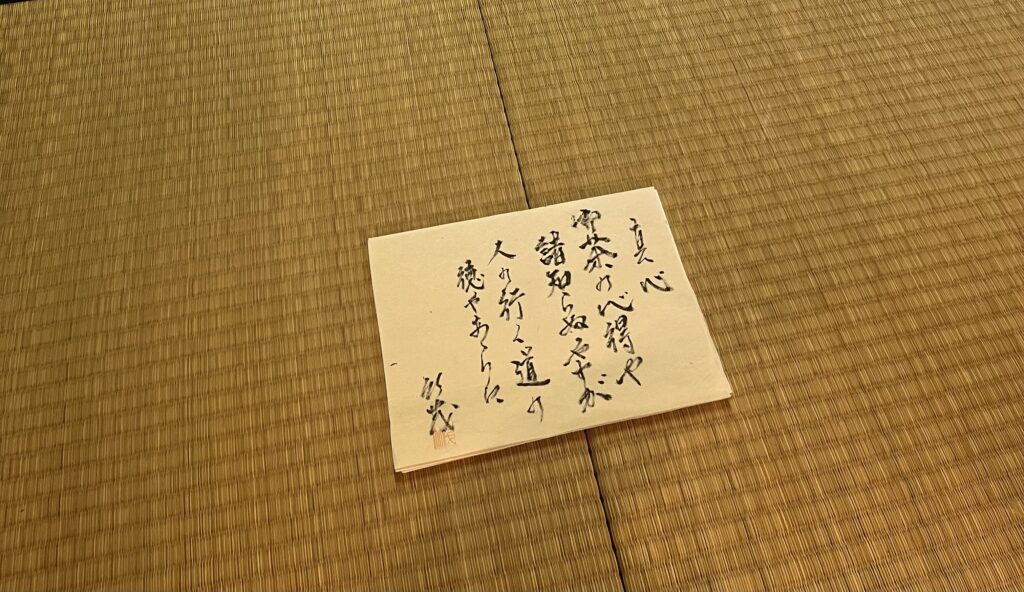 真心
御茶の心得や
諸知らぬやすが
人の行く道の
徳やあらは